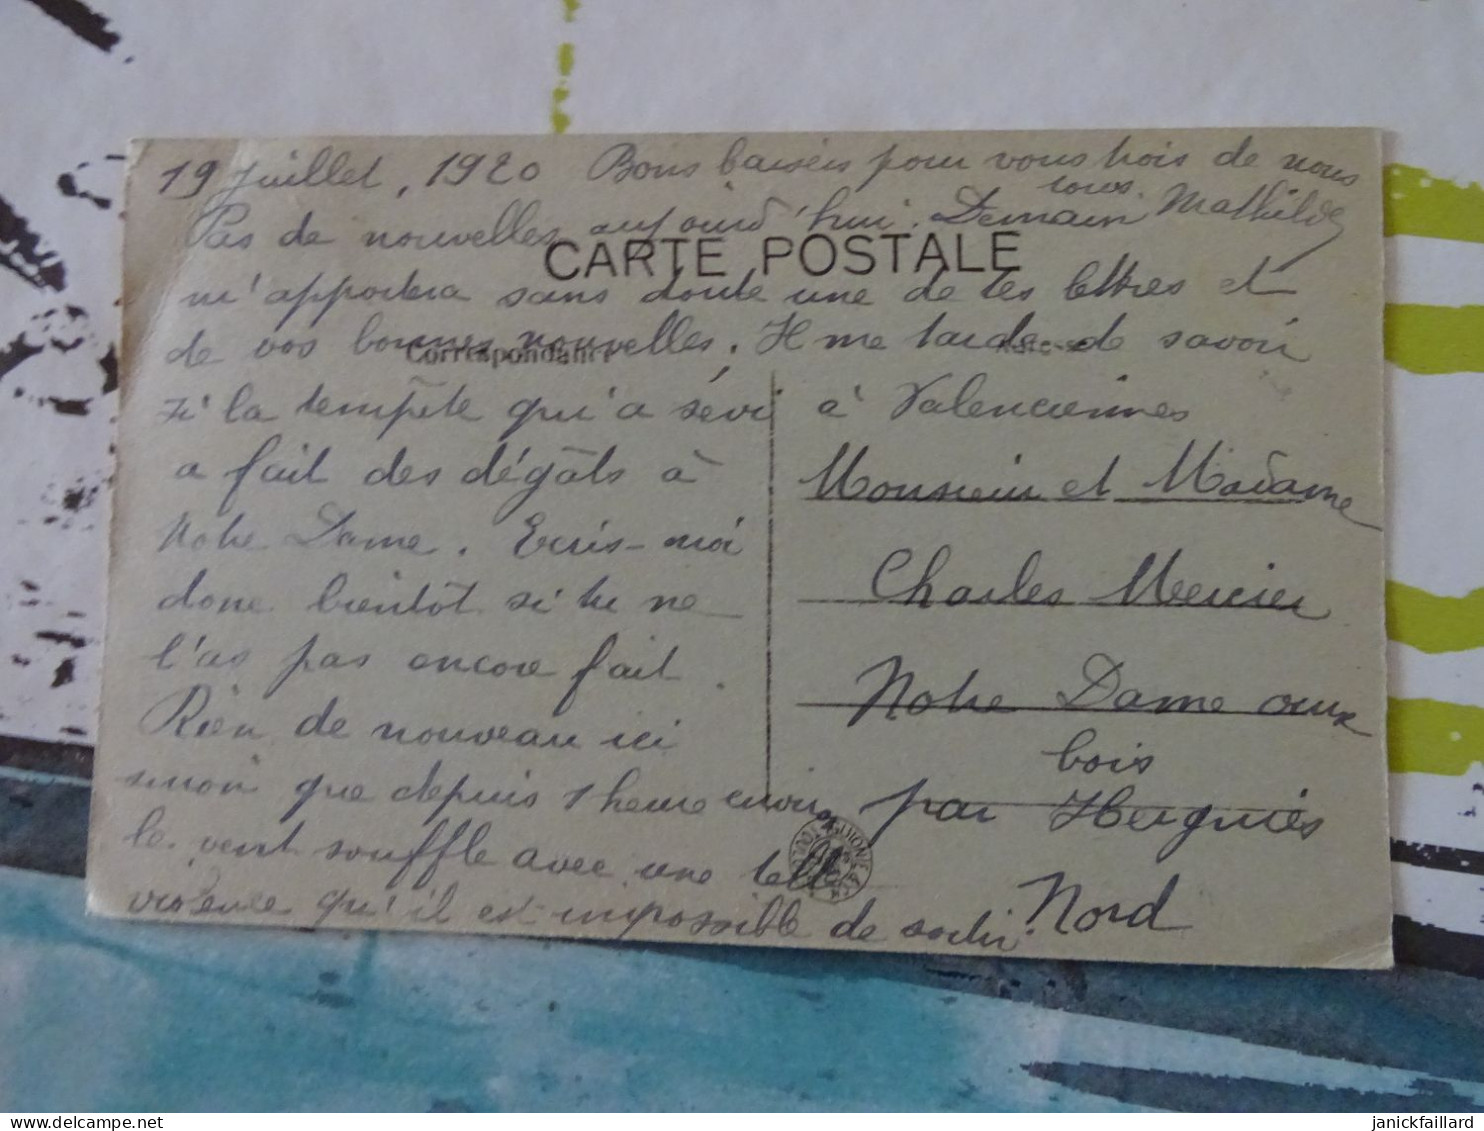 19 Juillet, 1920 Bons baisers pour vous trois de nous
tous. Mathilde
Pas de nouvelles aujourd'hui. Demain
CARTE POSTALE
m'apportera sans doute une de tes lettres et
de vos bonnes nouvelles. Il me tarde de savoir
Correspondance
Adresse
si la tempête qu'a sévi à Valenciennes
a fait des dégâts à
Notre Dame. Ecris-moi
donc bientôt si tu ne
l'as pas encore fait.
Rien de nouveau ici
sinon que depuis 1 heure environ
le vent souffle avec une telle
violence qu'il est impossible de sortir.
Monsieur et Madame
Charles Mercier
Notre Dame aux
bois
par Hergnies
Nord
janickfaillard